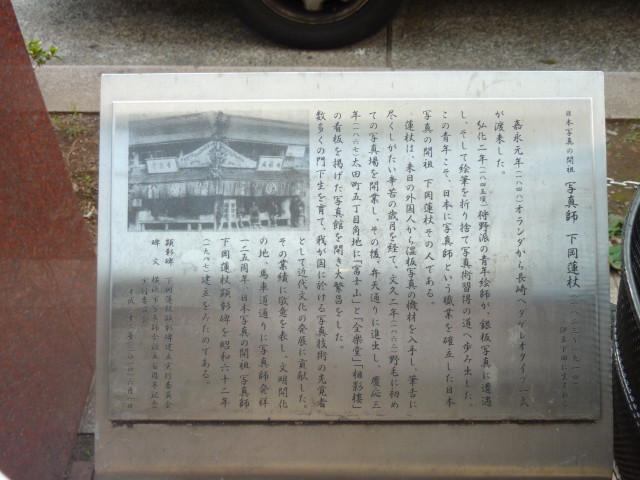 日本写真の開祖 写真師 下岡蓮杖(一八二三〜一九一四)
伊豆下田に生まれる
嘉永元年(一八四八)オランダから長崎へダゲレオタイプ一式
が渡来した。
弘化二年(一八四五頃)狩野派の青年絵師が、銀板写真に遭遇
し、そして絵筆を折り捨て写真術習得の道へ歩み出した。
この青年こそ、日本に写真師という職業を確立した日本
写真の開祖 下岡蓮杖その人である。
蓮杖は、来日の外国人から湿板写真の機材を入手し、筆舌に
尽くしがたい辛苦の歳月を経て、文久二年(一八六二)野毛に初め
ての写真場を開業し、その後、弁天通りに進出し、慶応三
年(一八六七)太田町五丁目角地に「富士山」と「全楽堂」「相影楼」
の看板を掲げた写真館を開き大繁昌をした。
数多くの門下生を育て、我が国に於ける写真技術の先覚者
として近代文化の発展に貢献した。
その業績に敬意を表し、文明開化
の地、馬車道通りに写真師発祥
一二五周年、日本写真の開祖写真師
下岡蓮杖顕彰碑を昭和六十二年
(一九八七)建立をみたのである。
顕彰碑 下岡蓮杖顕彰碑建立実行委員会
碑文 横浜市写真師会